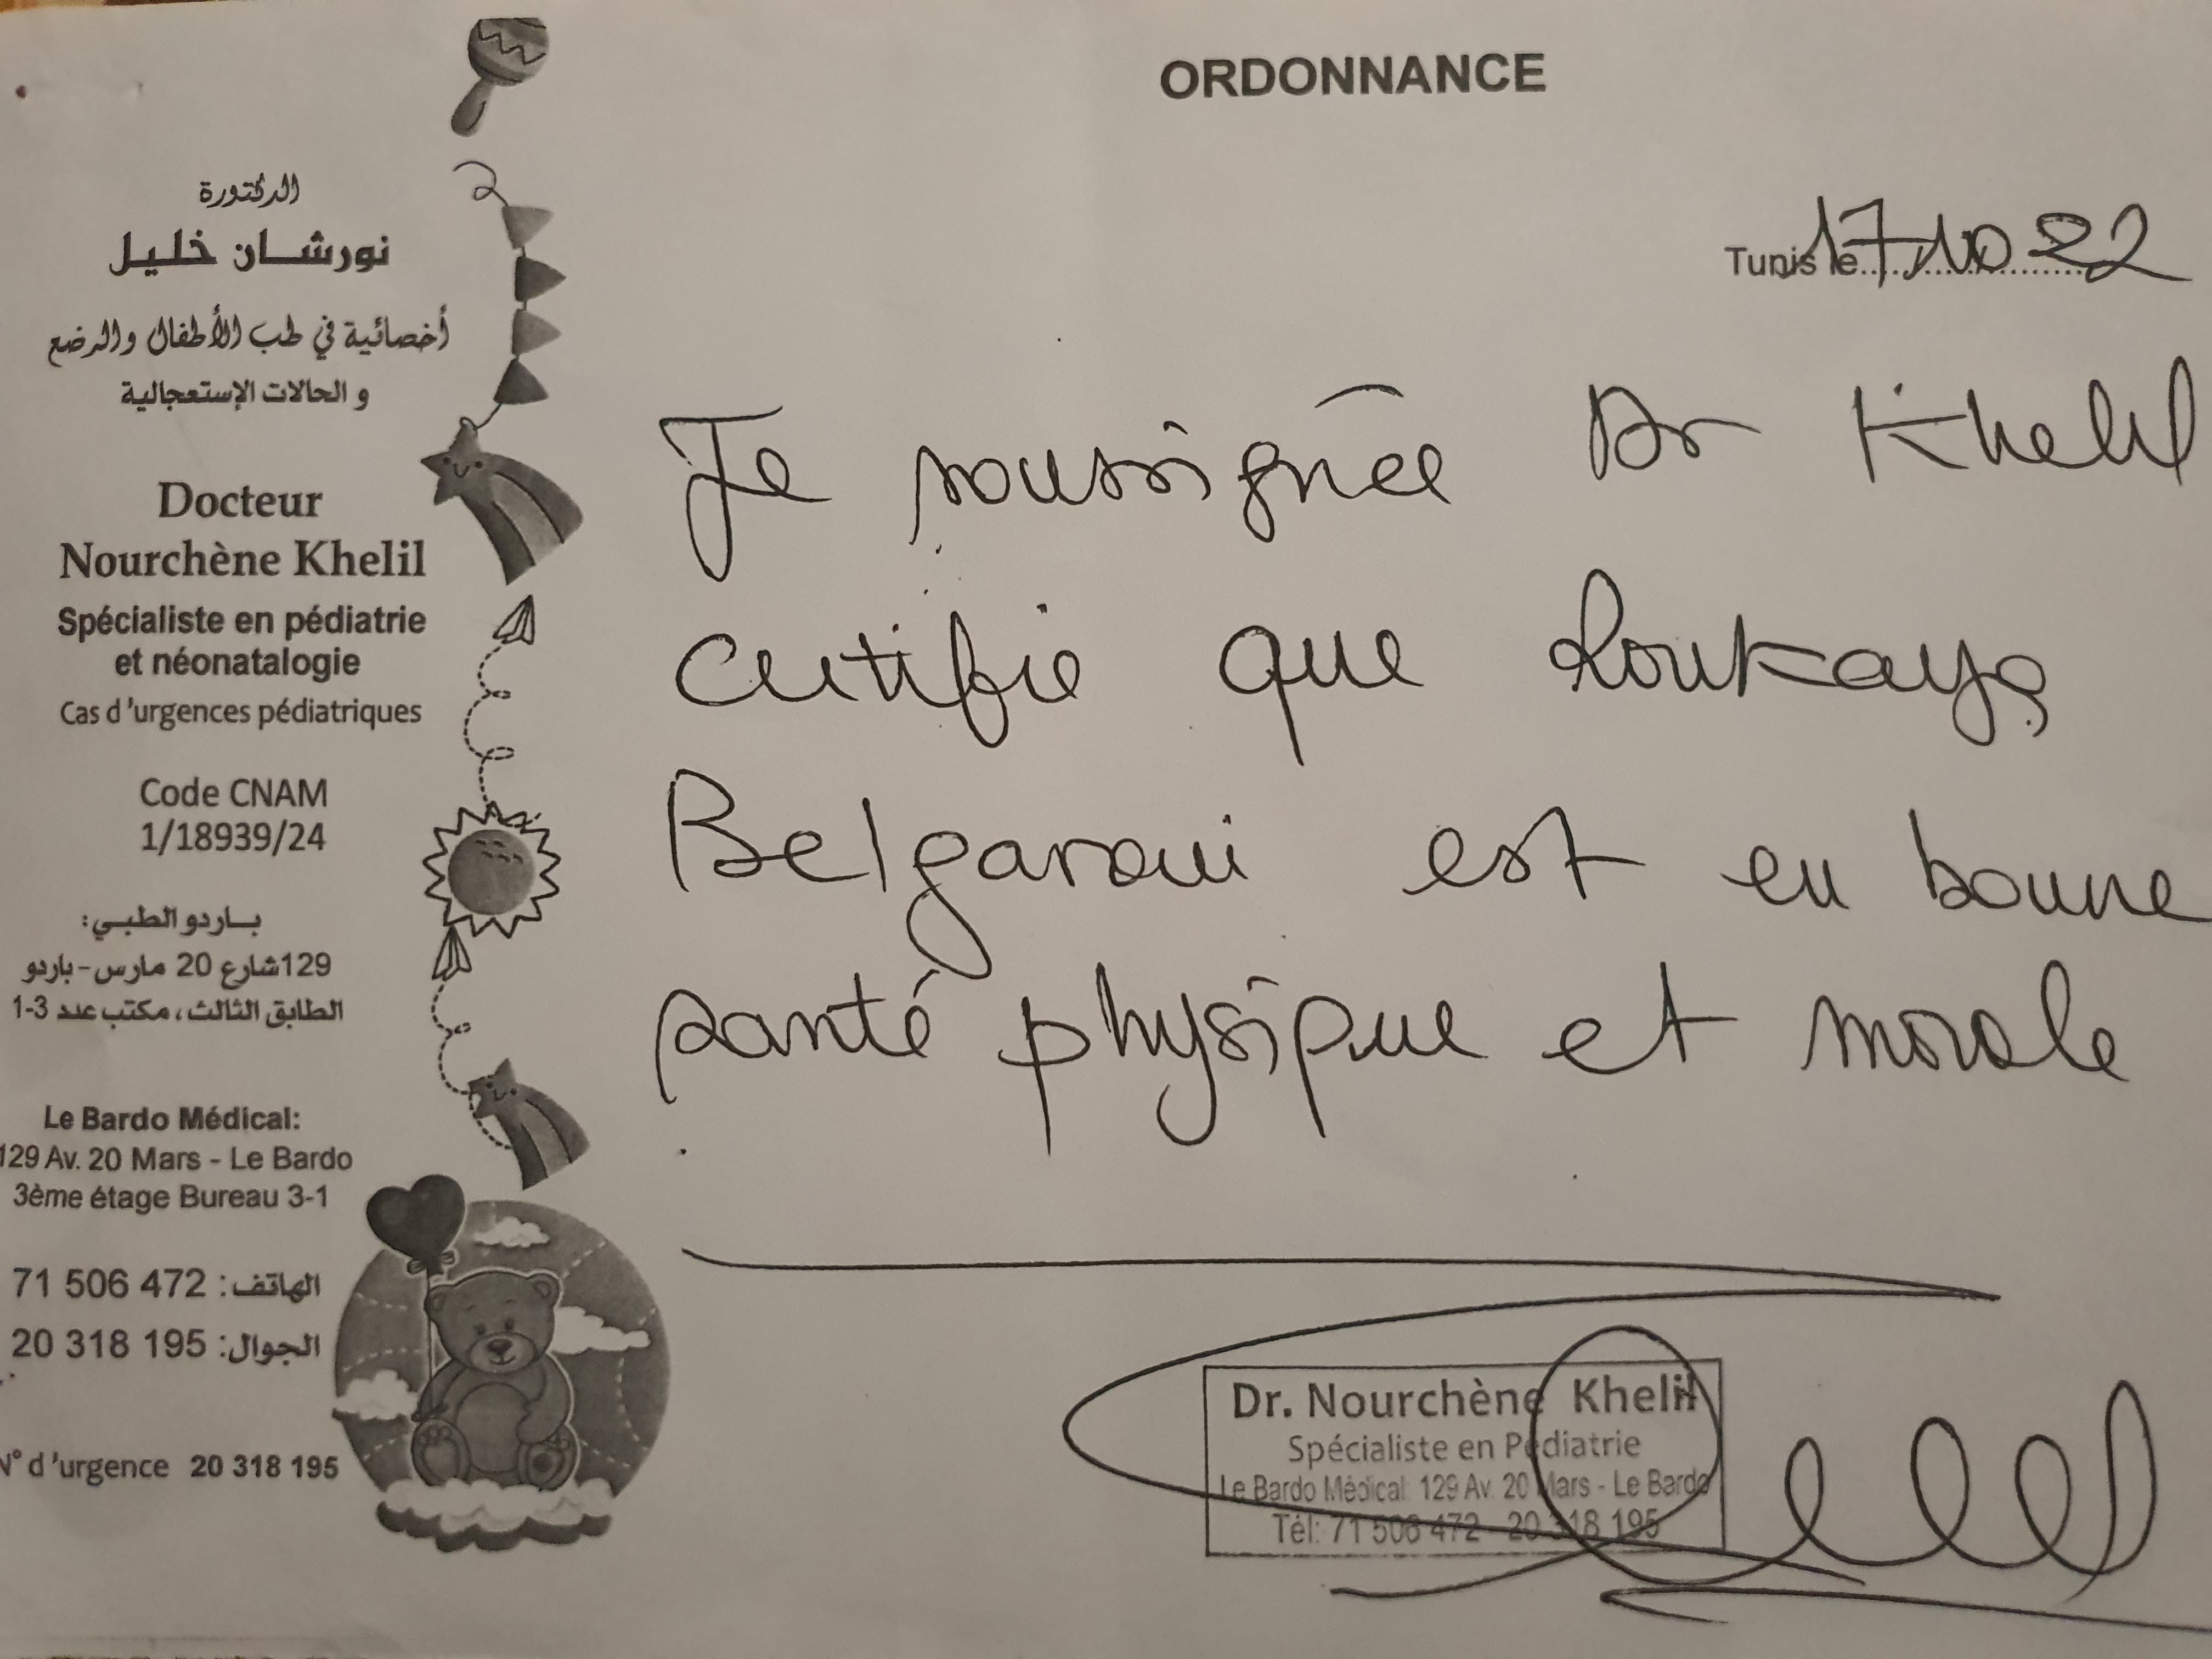 ORDONNANCE
الدكتورة
نورشان خليل
أخصائية في طب الأطفال والرضع
و الحالات الإستعجالية
Docteur
Nourchène Khelil
Spécialiste en pédiatrie
et néonatalogie
Cas d'urgences pédiatriques
Code CNAM
1/18939/24
باردو الطبي:
129شارع 20 مارس-باردو
الطابق الثالث، مكتب عدد 3-1
Le Bardo Médical:
129 Av. 20 Mars - Le Bardo
3ème étage Bureau 3-1
الهاتف: 71 506 472
الجوال: 20 318 195
N° d'urgence 20 318 195
Tunis le 17/10 22
Je soussignée Dr Khelil
certifie que Roukaya
Belgaroui est en bonne
santé physique et morale
Dr. Nourchène Khelil
Spécialiste en Pédiatrie
Le Bardo Médical: 129 Av. 20 Mars - Le Bardo
Tél: 71 506 472 - 20 318 195